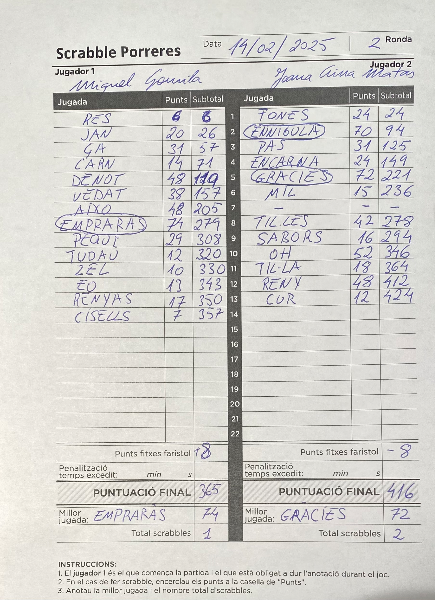 Scrabble Porreres
Data 14/02/2025 2 Ronda
Jugador 1 Jugador 2
Miquel Gomila Joana Aina Matas
Jugada Punts Subtotal Jugada Punts Subtotal
RES 6 6 1 FONES 24 24
JAN 20 26 2 ENNIGULA 70 94
GA 31 57 3 PAS 31 125
CARN 14 71 4 ENCARNA 24 149
DENOT 48 119 5 GRACIES 72 221
VEDAT 38 157 6 MIL 15 236
AIXO 48 205 7 – – –
EMPRARAS 74 279 8 TIL·LES 42 278
PEQUI 29 308 9 SABORS 16 294
TUDAU 12 320 10 OH 52 346
ZEL 10 330 11 TIL·LA 18 364
EO 13 343 12 RENY 48 412
RENYAS 17 350 13 CUR 12 424
CISELLS 7 357 14
15
16
17
18
19
20
21
22
Punts fitxes faristol 18 Punts fitxes faristol - 8
Penalització Penalització
temps excedit: min s temps excedit: min s
PUNTUACIÓ FINAL 365 PUNTUACIÓ FINAL 416
Millor Millor
jugada: EMPRARAS 74 jugada: GRACIES 72
Total scrabbles 1 Total scrabbles 2
INSTRUCCIONS:
1. El jugador 1 és el que comença la partida i el que està obligat a dur l'anotació durant el joc.
2. En el cas de fer scrabble, encerclau els punts a la casella de "Punts".
3. Anotau la millor jugada i el nombre total d'scrabbles.